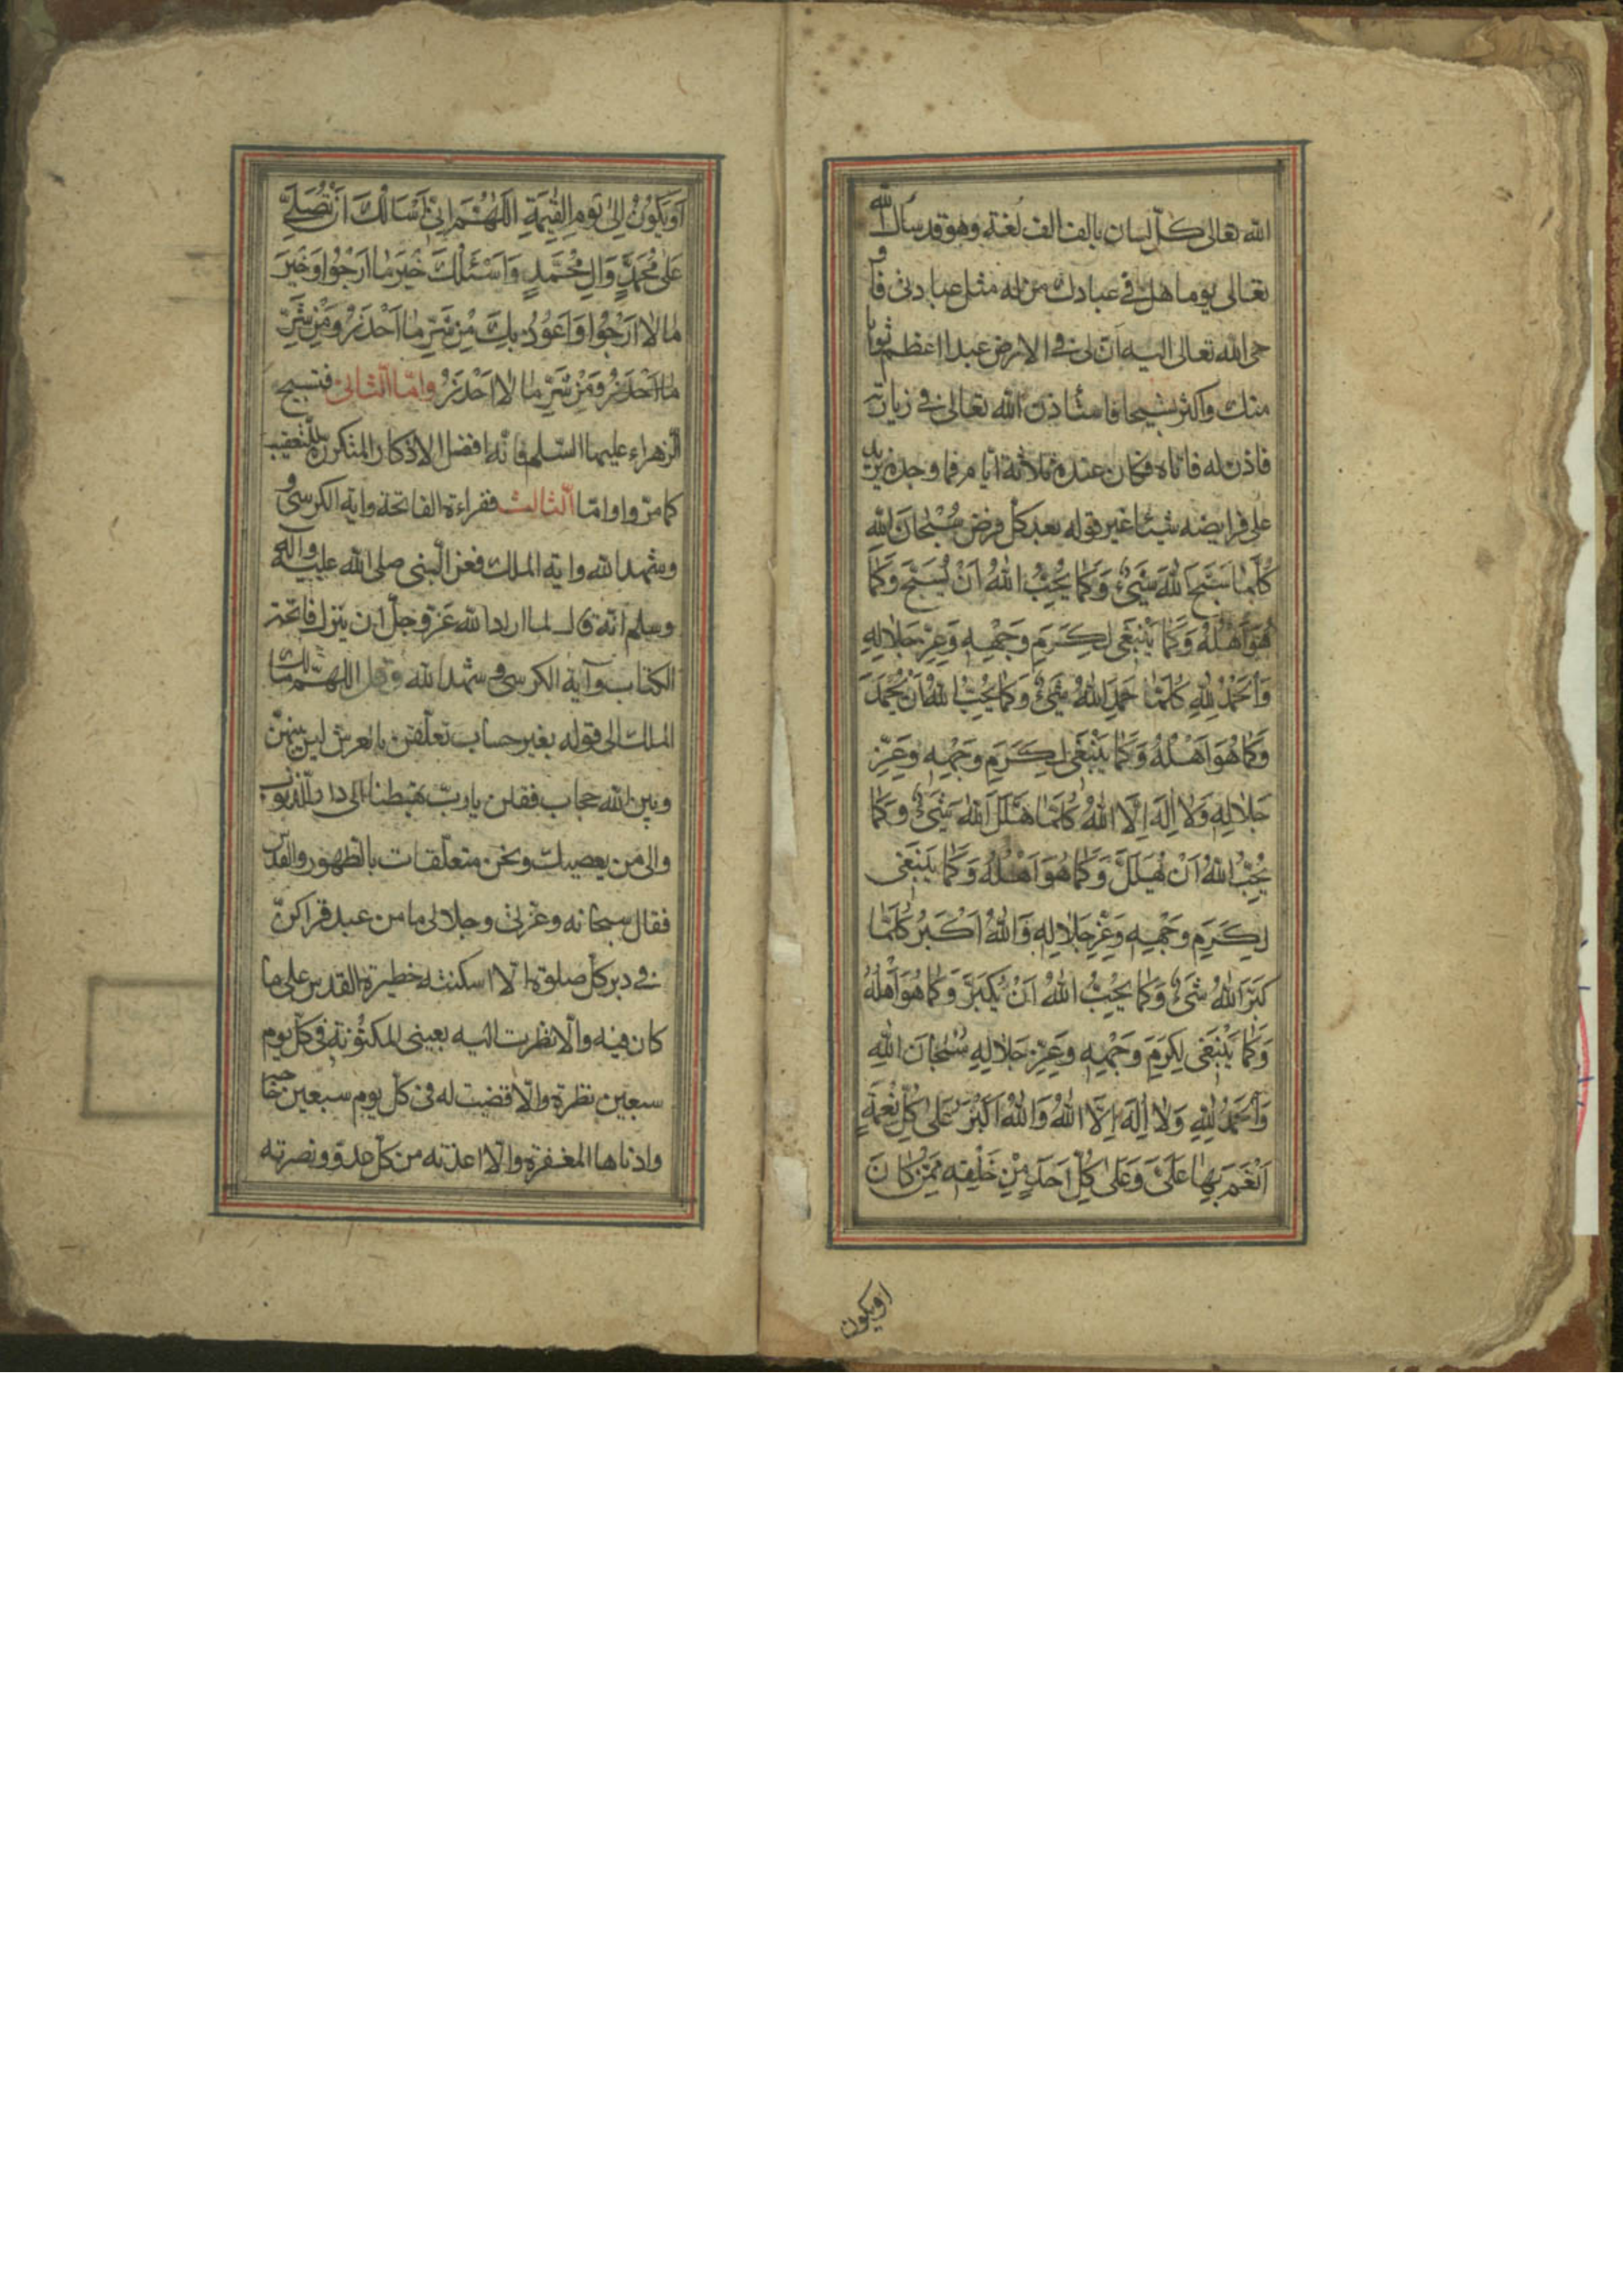 الله تعالى كل لسان بالف الف لغة وهو قد سأل الله
تعالى يوما هل في عبادك من له مثل عبادتى فاو
حى الله تعالى اليه ان لى في الارض عبدا اعظم ثوابا
منك واكثر تسبيحا فاستأذن الله تعالى في زيارته
فاذن له فاتاه فكان عنده ثلاثة ايام فما وجده يزيد
على فرايضه شيئا غير قوله بعد كل فرض سُبْحانَ اللهِ
كُلَّما سَبَّحَ اللهَ شَىْءٌ وَكَما يُحِبُّ اللهُ اَنْ يُسَبَّحَ وَكَما
هُوَ اَهْلُهُ وَكَما يَنْبَغى لِكَرَمِ وَجْهِهِ وَعِزِّ جَلالِهِ
وَالحَمْدُ لِلهِ كُلَّما حَمِدَ اللهَ شَىْءٌ وَكَما يُحِبُّ اللهُ اَنْ يُحْمَدَ
وَكَما هُوَ اَهْلُهُ وَكَما يَنْبَغى لِكَرَمِ وَجْهِهِ وَعِزِّ
جَلالِهِ وَلا اِلهَ اِلَّا اللهُ كُلَّما هَلَّلَ اللهَ شَىْءٌ وَكَما
يُحِبُّ اللهُ اَنْ يُهَلَّلَ وَكَما هُوَ اَهْلُهُ وَكَما يَنْبَغى
لِكَرَمِ وَجْهِهِ وَعِزِّ جَلالِهِ وَاللهُ اَكْبَرُ كُلَّما
كَبَّرَ اللهَ شَىْءٌ وَكَما يُحِبُّ اللهُ اَنْ يُكَبَّرَ وَكَما هُوَ اَهْلُهُ
وَكَما يَنْبَغى لِكَرَمِ وَجْهِهِ وَعِزِّ جَلالِهِ سُبْحانَ اللهِ
وَالحَمْدُ لِلهِ وَلا اِلهَ اِلَّا اللهُ وَاللهُ اَكْبَرُ عَلى كُلِّ نِعْمَةٍ
اَنْعَمَ بِها عَلَىَّ وَعَلى كُلِّ اَحَدٍ مِنْ خَلْقِهِ مِمَّنْ كانَ
اويكون
اَوْ يَكُونُ اِلى يَوْمِ القِيمَةِ اَللّهُمَّ اِنّى اَسْاَلُكَ اَنْ تُصَلِّىَ
عَلى مُحَمَّدٍ وَالِ مُحَمَّدٍ وَاَسْئَلُكَ خَيْرَ ما اَرْجُوا وَخَيْرَ
ما لا اَرْجُوا وَاَعُوذُ بِكَ مِنْ شَرِّ ما اَحْذَرُ وَمِنْ شَرِّ
ما اَحْذَرُ وَمِنْ شَرِّ ما لا اَحْذَرُ وامّا الثانى فتسبيح
الزهراء عليها السلم فانه افضل الاذكار المتكررة للتعقيب
كما مرّ واوامّا الثالث فقراءة الفاتحة واية الكرسى و
وشهد الله واية الملك فعن النبى صلى الله عليه واله
وسلم انه قال لما اراد الله عزوجل ان ينزل فاتحة
الكتاب وآية الكرسى وشهد الله وقل اللهم مالك
الملك الى قوله بغير حساب تعلقن بالعرش ليس بينهن
وبين الله حجاب فقلن يا رب تهبطنا الى دار الذنوب
والى من يعصيك ونحن متعلقات بالطهور والقدس
فقال سبحانه وعزتى وجلالى ما من عبد قراكن
في دبر كل صلوة الا اسكنته خطيرة القدس على ما
كان فيه والا نظرت اليه بعينى المكنونة فى كل يوم
سبعين نظرة والا قضيت له فى كل يوم سبعين حاجة
وادناها المغفرة والا اعذته من كل عدو ونصرته